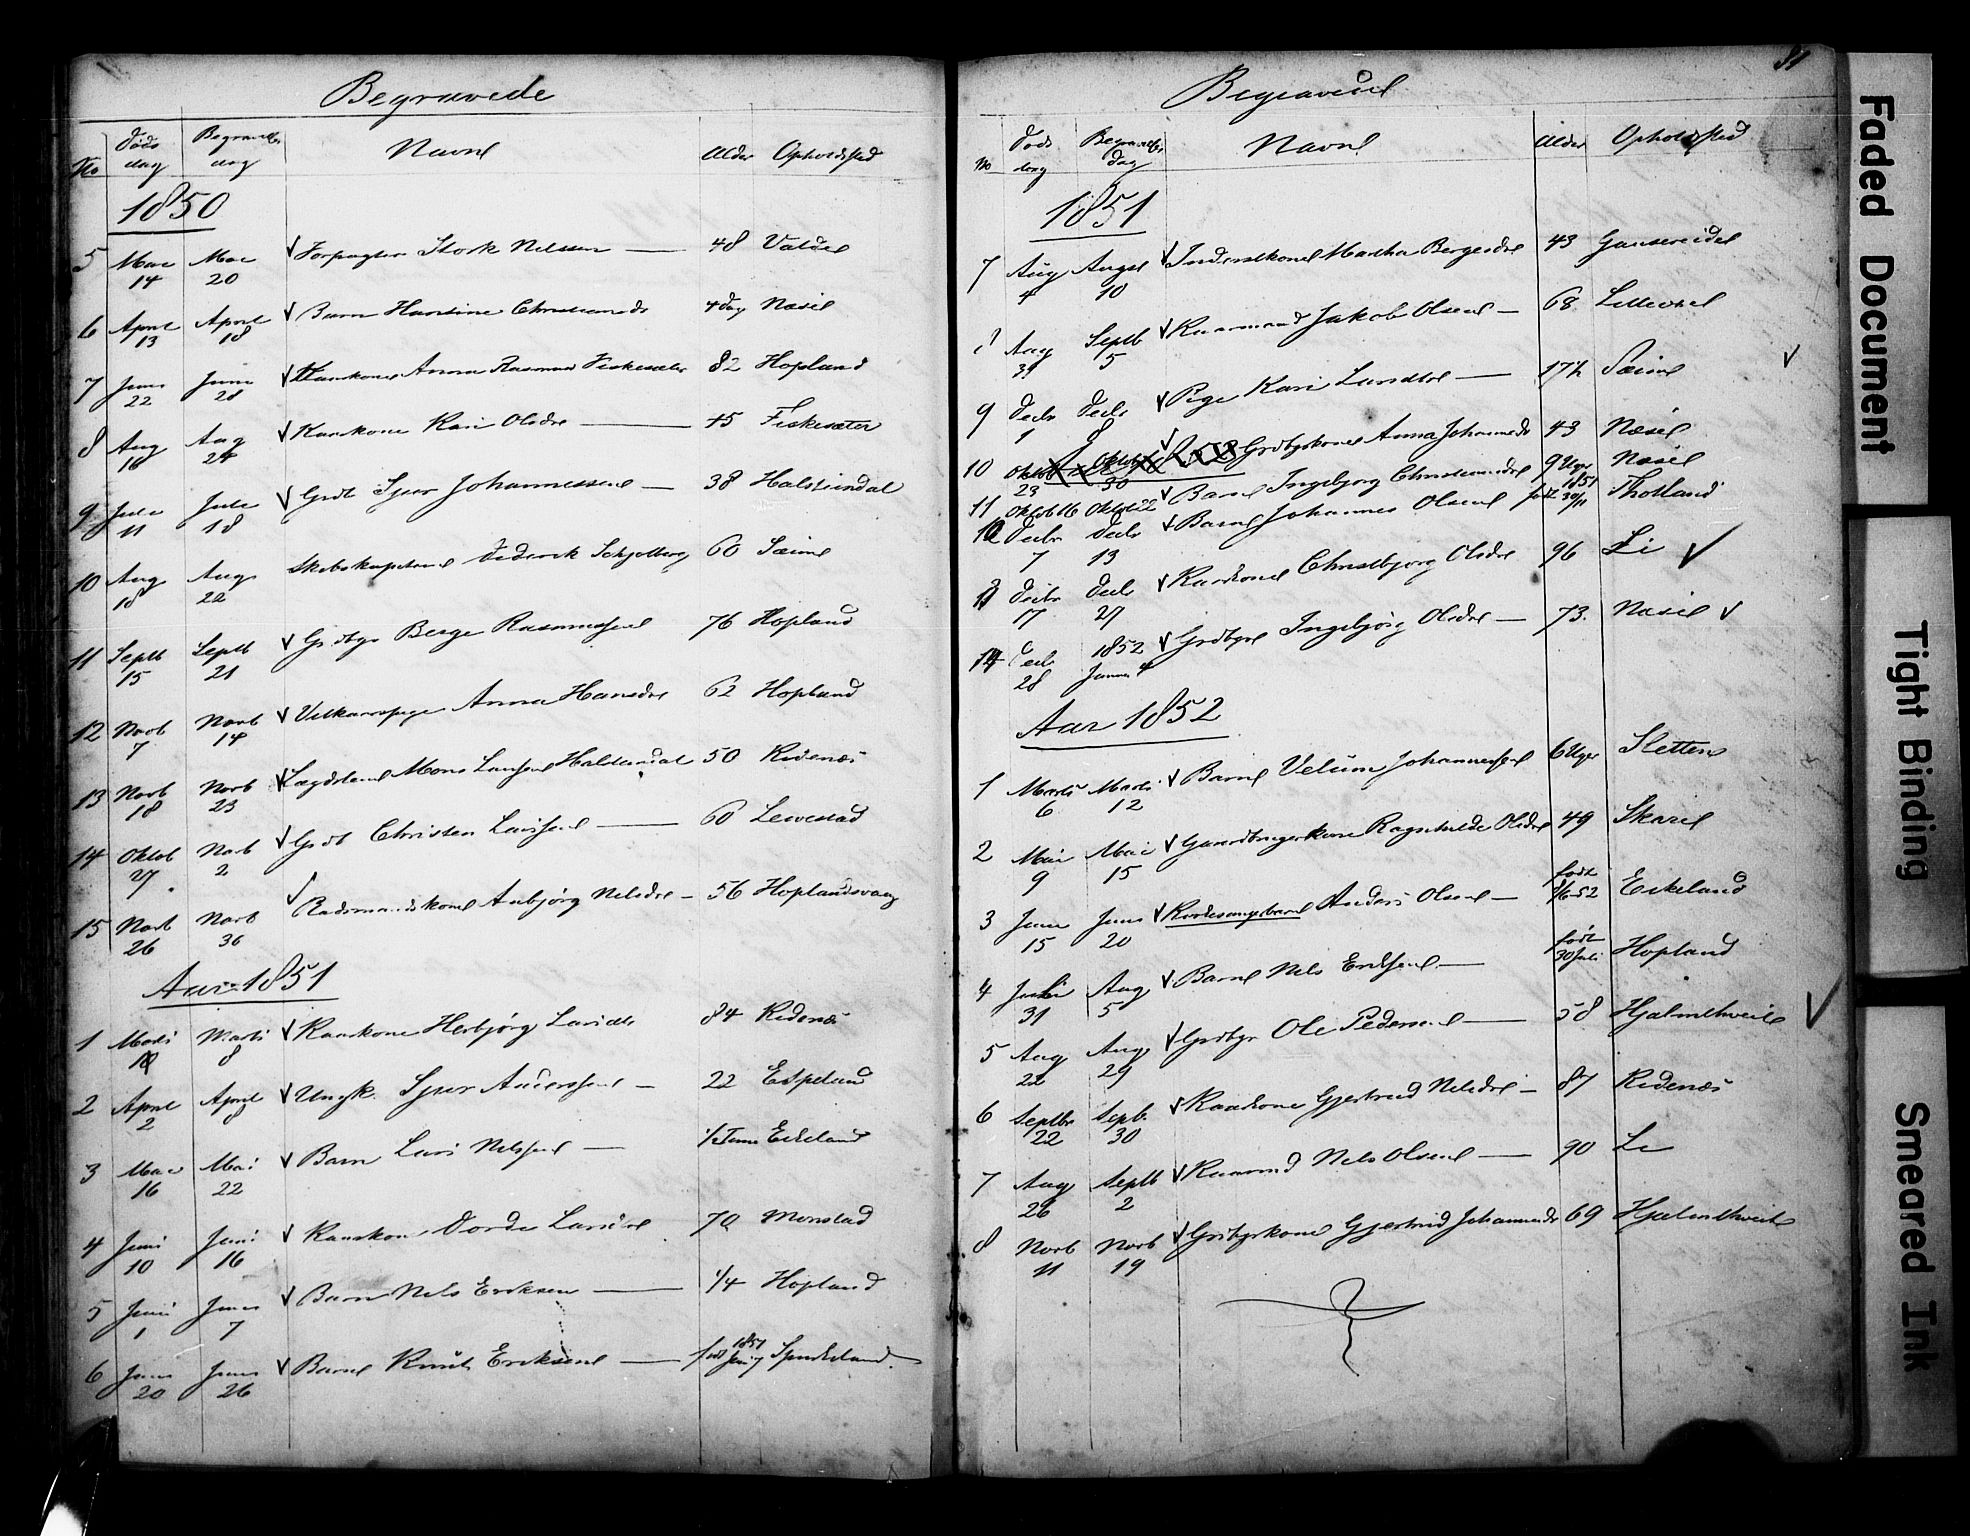 Begravede
No Døds dag Begravelses dag Navne Alder Opholdsted
1850
5 Mai 14 Mai 20 Forpagter Stork Nilssen 48 Valdel
6 April 13 April 18 Barn Hansine Christiansdr 4 dag Næsse
7 Juni 22 Juni 28 Kaarkone Anna Rasmusd Fiskesæter 82 Hopland
8 Aug 16 Aug 24 Kaarkone Kari Olsdr 45 Fiskesæter
9 Juli 11 Juli 18 Grdb Sjur Johannessen 38 Halsteindal
10 Aug 18 Aug 22 Skibskapitaine Diderik Schjelberg 60 Sæim
11 Septb 15 Septb 21 Grdbgr Berge Rasmussen 76 Hopland
12 Novb 7 Novb 14 Vilkaarspige Anna Hansdr 62 Hopland
13 Novb 18 Novb 23 Lægdslem Mons Larssen Halsteindal 50 Risnæs
14 Oktob 27 Novb 2 Grdb Christen Larssen 60 Levestad
15 Novb 26 Novb 30 Aabjørg Nilsdr 56 Hoplandsvaag
Aar 1851
1 Marts Marts 8 Kaarkone Herbjørg Larsdr 84 Risnæs
2 April 2 April 8 Ungk. Sjur Anderssen 22 Espeland
3 Mai 16 Mai 22 Barn Lars Nilssen 1/2 Time Eikeland
4 Juni 10 Juni 16 Kaarkon Dorde Larsdr 70 Monstad
5 Juni 1 Juni 7 Barn Nils Eriksen 1/4 Hopland
6 Juni 20 Juni 26 Barn Knut Eriksen født 1851 Juni 7
Begravede
81
No Døds dag Begravelses dag Navne Alder Opholdsted
1851
7 Aug 4 August 10 Inderstkone Martha Bergesdr 43
8 Aug 31 Septb 5 Kaarmand Jakob Olsen 68 Lilleoksel
9 Decbr 1 Decbr 8 Pige Kari Larsdtr 17 1/2 Sæim
10 Oktob 23 Oktob 30 Grdbgrkone Anna Johannesdr 43 Næsse
11 Oktob 16 Oktob 22 Barn Ingeborg Christiansdr 9 Uger Næsse
12 Decbr 7 Decbr 13 Barn Johannes Olsen født 1851 30/11 Tholland
13 Decbr 17 Decbr 27 Kaarkone Christbjørg Olsdr 96 Li
14 Decb 28 1852 Januar 4 Grdbgr Ingebjørg Olsdr 73. Næsse
Aar 1852
1 Marts 6 Marts 12 Barn Velum Johannessen 6 Uger Sletten
2 Mai 9 Mai 15 Gaardbrugerkone Ragnhilde Olsdr 49 Skare
3 Juni 15 Juni 20 Anders Olsen født 8/6 52 Eikeland
4 Juli 31 Aug 5 Barn Nils Eriksen født 30 Juli Hopland
5 Aug 22 Aug 29 Grdbgr Ole Pedersen 58 Hjelmtveit
6 Septbr 22 Septb. 30 Kaarkone Gjertrud Nilsdr 87 Risnæs
7 Aug 26 Septb 2 Kaarmd Nils Olsen 90 Li
8 Novb 11 Novb 19 Grdbgrkone Gjertrud Johannesdr 69 Hjelmtveit
Faded Document
Tight Binding
Smeared Ink